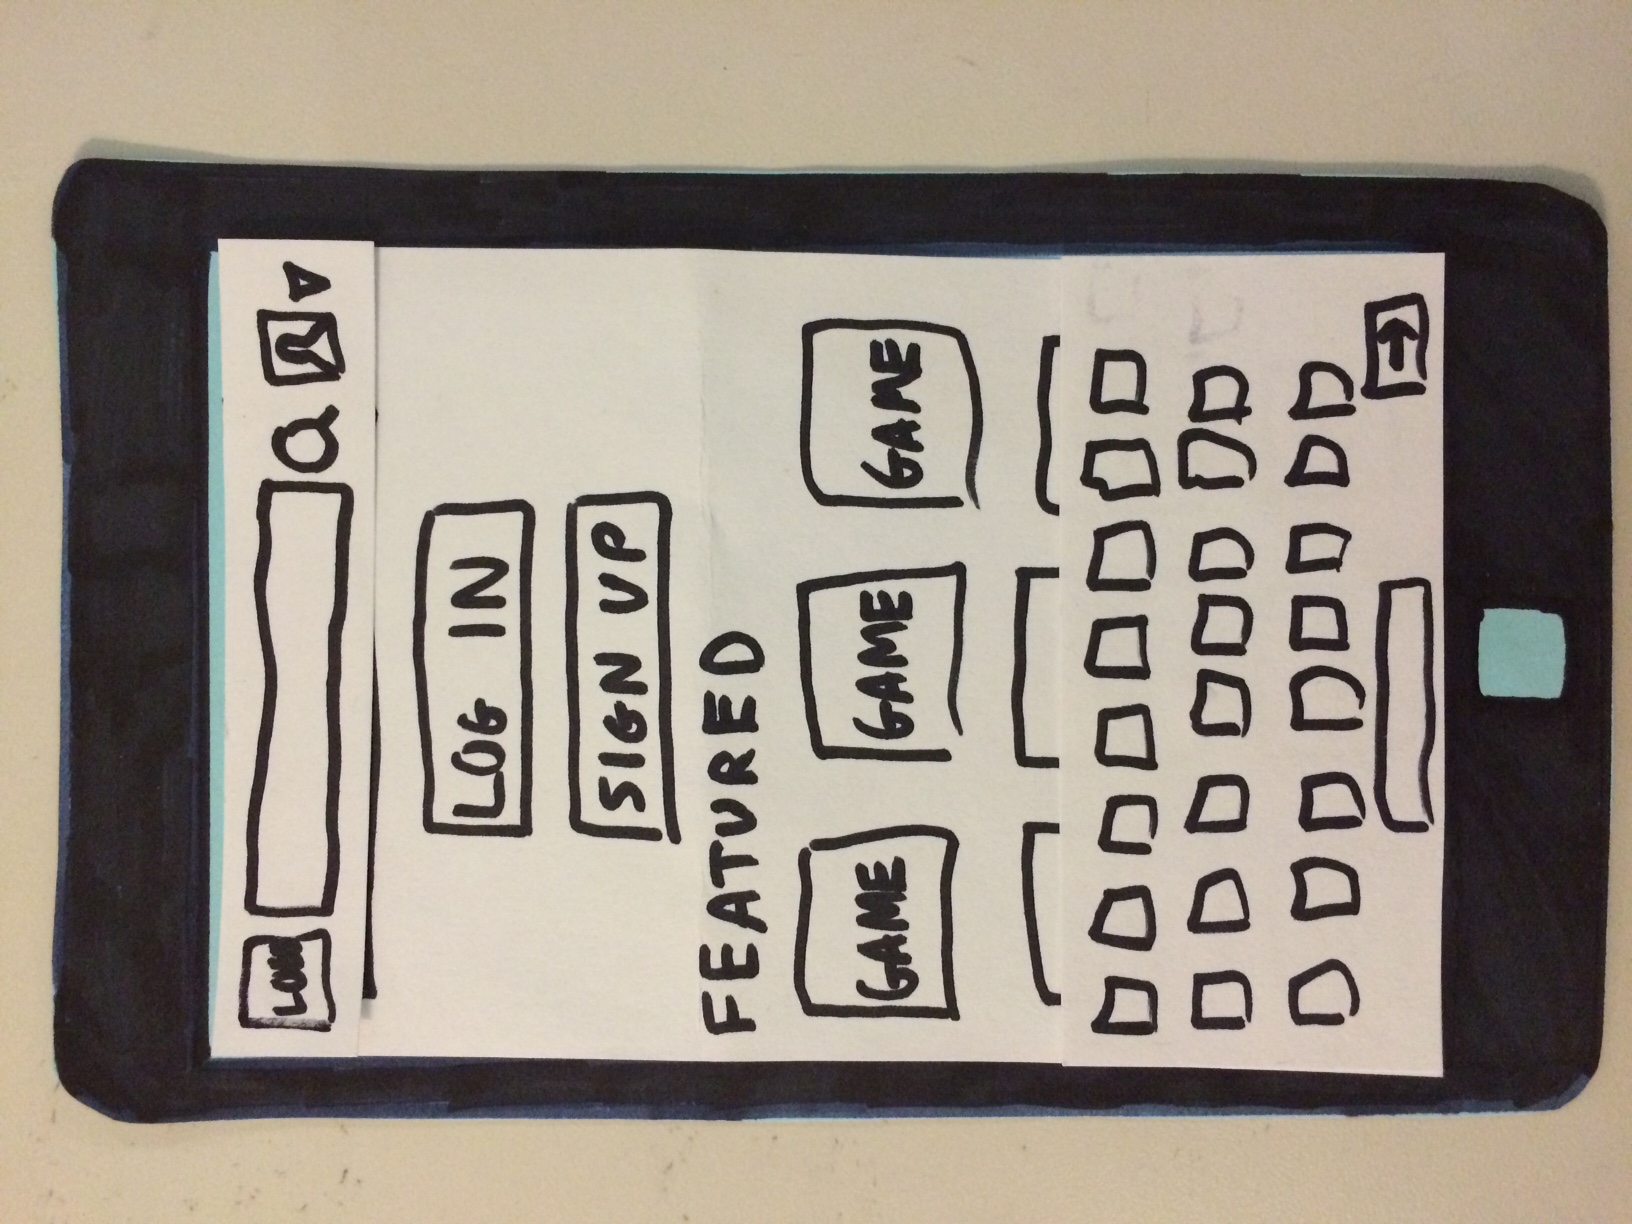 LOGO
LOG IN
SIGN UP
FEATURED
GAME GAME GAME